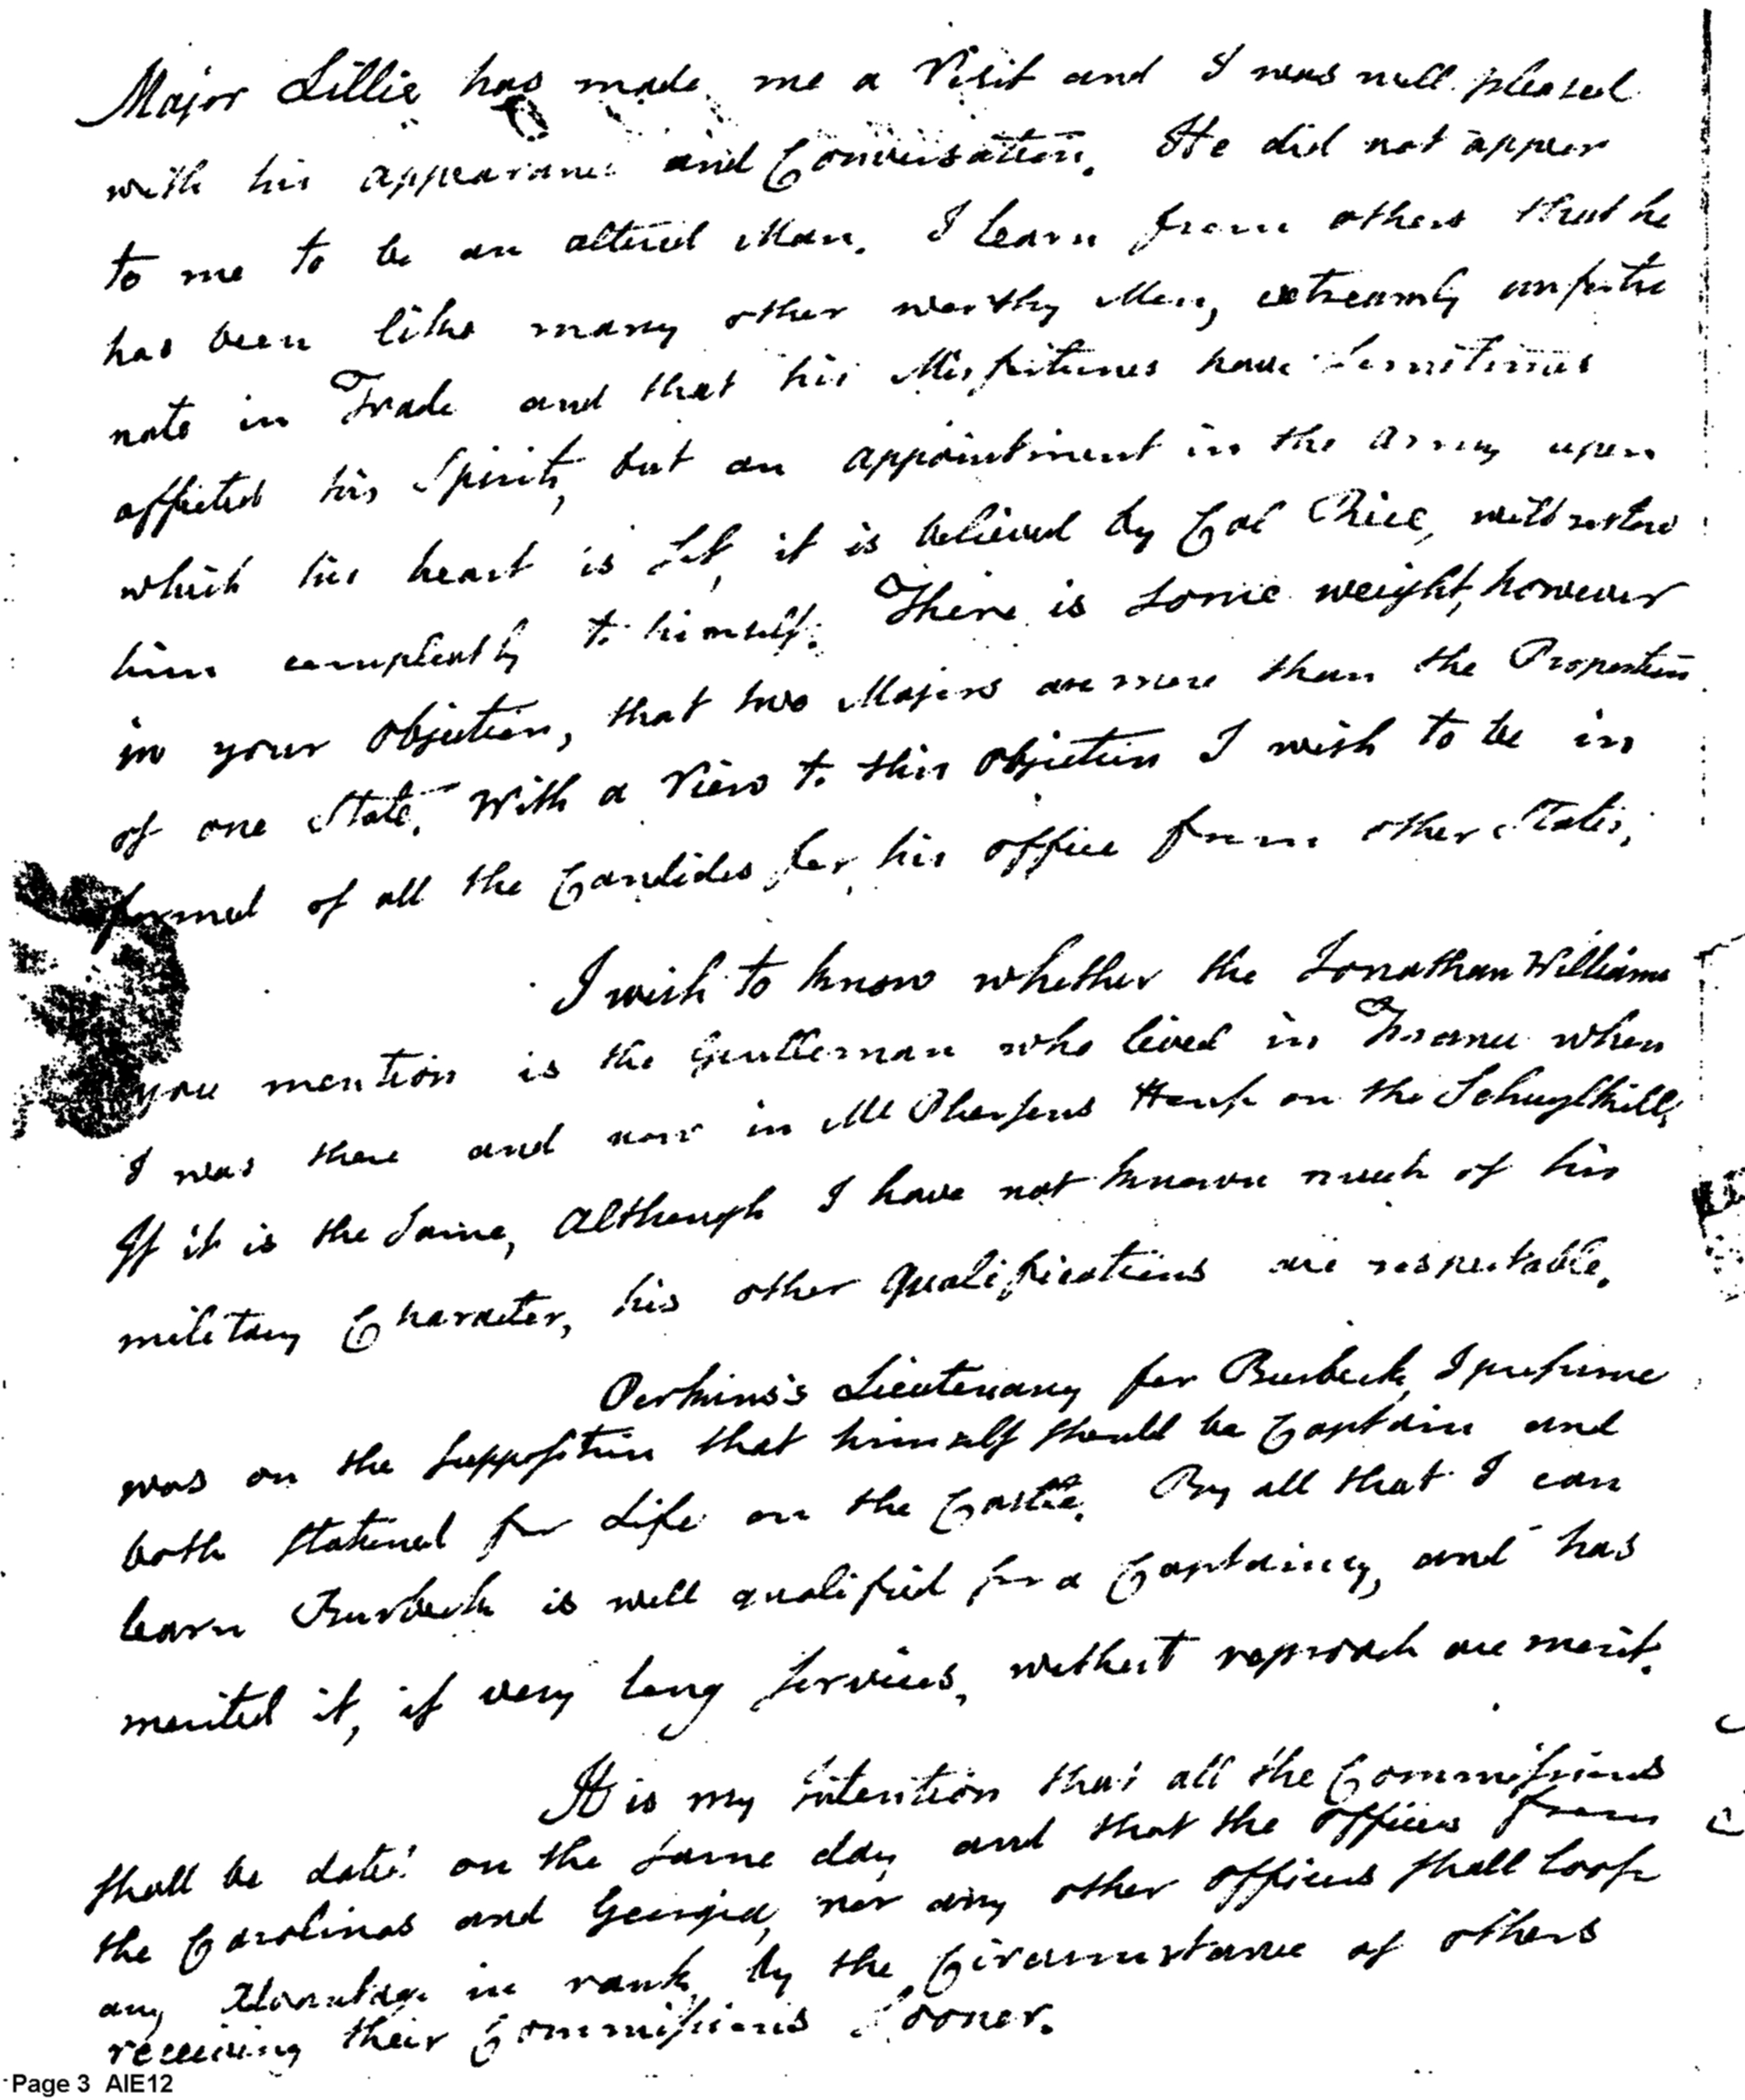 Major Lillie has made me a Visit and I was well pleased
with his appearance and Conversation. He did not appear
to me to be an altered Man. I learn from others that he
has been like many other worthy Men, extreamly unfortu
nate in Trade and that his Misfortunes have Sometimes
affected his Spirits, but an appointment in the army upon
which his heart is Set, it is believed by Col Rice, will restore
him compleatly to himself. There is some weight, however
in your objection, that two Majors are more than the Proportion
of one State. With a View to this objection I wish to be in
formed of all the Candides for his office from other States.
I wish to know whether the Jonathan Williams
you mention is the Gentleman who lived in France when
I was there and now in McPhersons House on the Schuylkill,
If it is the Same, although I have not known much of his
military Character, his other qualifications are respectable.
Perkins's Lieutenancy for Burbeck, I presume
was on the Supposition that himself should be Captain and
both stationed for Life on the Castle. By all that I can
learn Burbeck is well qualified for a Captaincy, and has
merited it, if very long Services, without reproach are merit.
It is my Intention that all the Commissions
shall be dated on the same day and that the officers from
the Carolinas and Georgia, nor any other officers shall loose
any Advantage in rank, by the Circumstance of others
receiving their Commissions Sooner.
Page 3 AIE12